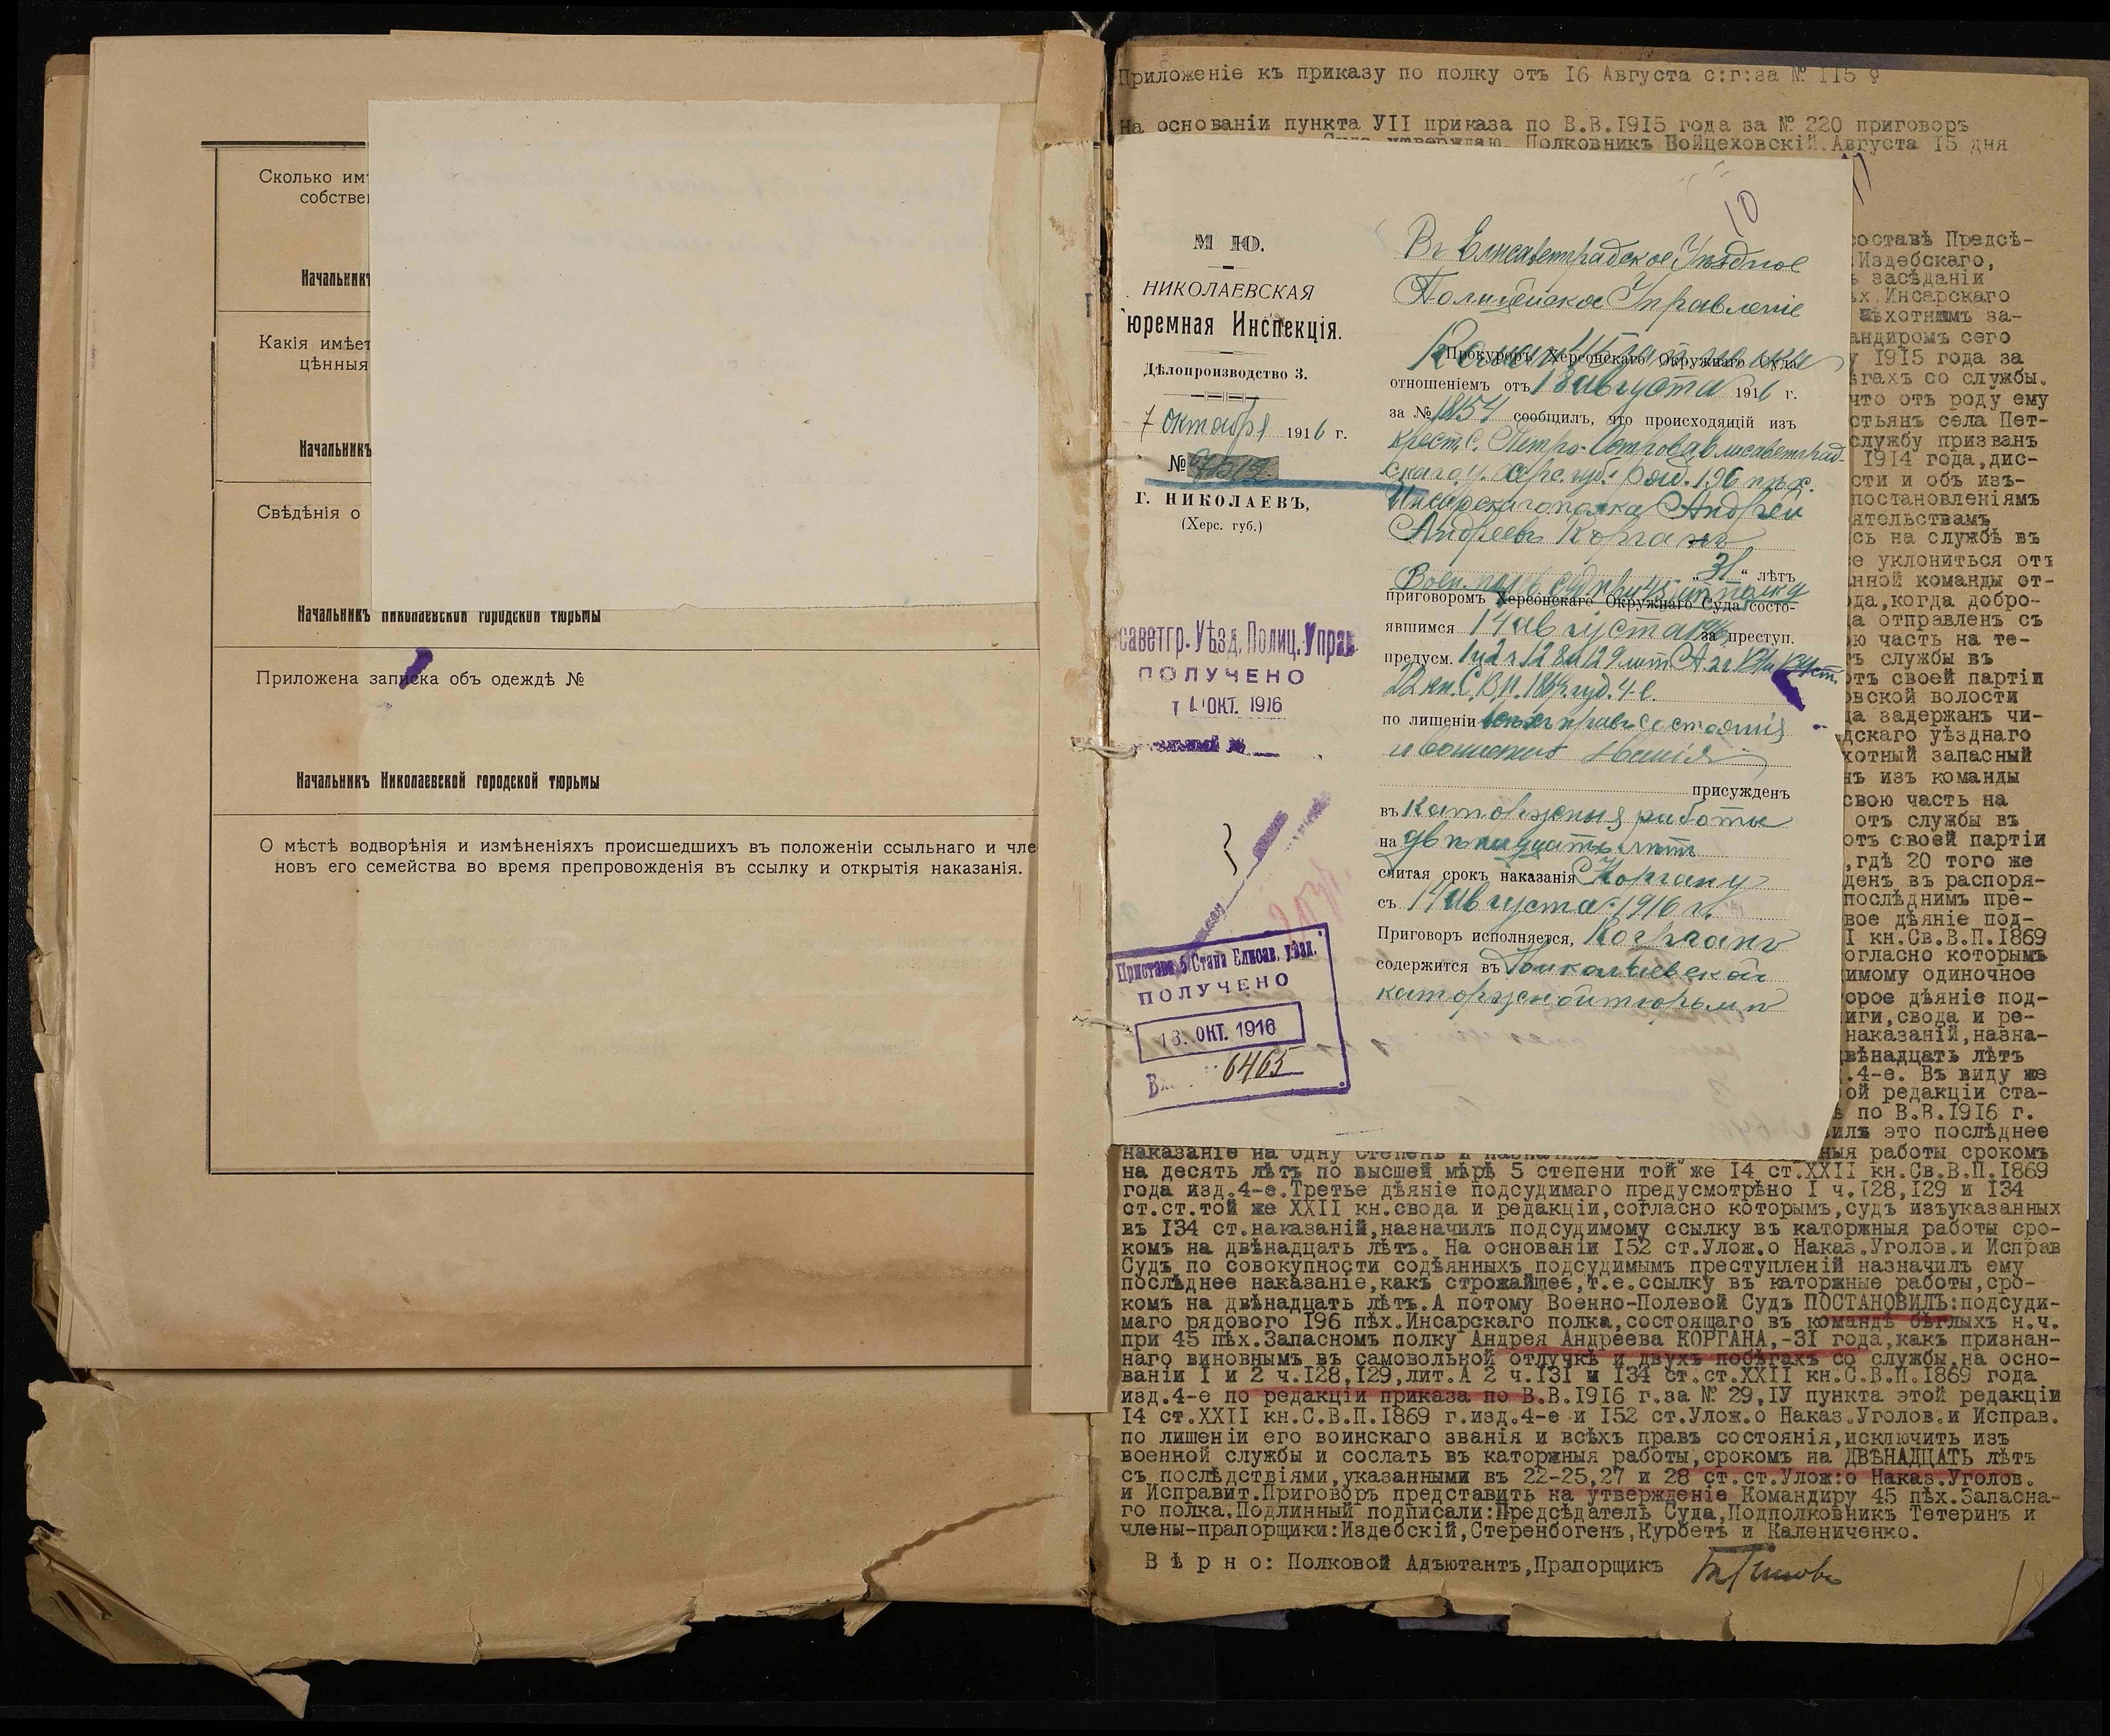 Сколько имѣ
собствен
Начальникъ
Какія имѣет
цѣнныя
Начальникъ
Свѣдѣнія о
Начальникъ Николаевской городской тюрьмы
Приложена записка объ одеждѣ №
Начальникъ Николаевской городской тюрьмы
О мѣстѣ водворѣнія и измѣненіяхъ происшедшихъ въ положеніи ссыльнаго и чле-
новъ его семейства во время препровожденія въ ссылку и открытія наказанія.
Приложеніе къ приказу по полку отъ 16 Августа с:г:за № 115
На основаніи пункта УІІ приказа по В.В.1915 года за № 220 приговоръ
Суда утверждаю. Полковникъ Войцеховскій.Августа 15 дня
10
М Ю.
НИКОЛАЕВСКАЯ
юремная Инспекція.
Дѣлопроизводство 3.
7 октября 1916 г.
№
Г. НИКОЛАЕВЪ,
(Херс. губ.)
саветгр. Уѣзд. Полиц. Управ
ПОЛУЧЕНО
ОКТ. 1916
Пристава 5 Стана Елисав. уѣзд.
ПОЛУЧЕНО
18. ОКТ. 1916
Вх. 6465
Въ Елисаветградское Уѣздное
Полицейское Управленіе
Прокуроръ Херсонскаго Окружнаго Суда
отношеніемъ отъ 18 августа 1916 г.
за № 1854 сообщилъ, что происходящій изъ
крест. с. Петро-Острова Елисаветград-
скаго у. Херс. губ. ряд. 196 пѣх.
Инсарскаго полка Андрей
Андреевъ Корганъ
„31“ лѣтъ
приговоромъ Херсонскаго Окружнаго Суда состо-
явшимся 14 августа 1916 за преступ.
предусм. 1 и 2 ч. 128, 129 лит. А 2 ч. 131 и 134 ст.
22 кн. С.В.П. 1869 изд. 4-е.
по лишеніи всѣхъ правъ состоянія
и воинскаго званія
присужденъ
въ каторжныя работы
на двѣнадцать лѣтъ
считая срокъ наказанія Коргану
съ 14 августа 1916 г.
Приговоръ исполняется, Корганъ
содержится въ Николаевской
каторжной тюрьмѣ
составѣ Предсѣ-
Издебскаго,
засѣданіи
Инсарскаго
ѣхотнымъ за-
андиромъ сего
у 1915 года за
ѣгахъ со службы.
что отъ роду ему
стьянъ села Пет-
службу призванъ
1914 года,дис-
сти и объ изъ-
постановленіямъ
ятельствамъ
сь на службѣ въ
се уклониться отъ
нной команды от-
ода,когда добро-
а отправленъ съ
ю часть на те-
ъ службы въ
отъ своей партіи
вской волости
да задержанъ чи-
дскаго уѣзднаго
хотный запасный
нъ изъ команды
свою часть на
отъ службы въ
отъ своей партіи
,гдѣ 20 того же
денъ въ распоря-
послѣднимъ пре-
вое дѣяніе под-
І кн.Св.В.П.1869
огласно которымъ
имому одиночное
орое дѣяніе под-
иги,свода и ре-
наказаній,назна-
двѣнадцать лѣтъ
.4-е. Въ виду же
ой редакціи ста-
ѣ по В.В.1916 г.
илъ это послѣднее
наказаніе на одну степень и назначилъ ныя работы срокомъ
на десять лѣтъ по высшей мѣрѣ 5 степени той же 14 ст.XXII кн.Св.В.П.1869
года изд.4-е.Третье дѣяніе подсудимаго предусмотрѣно І ч.128,129 и 134
ст.ст.той же XXII кн.свода и редакціи,согласно которымъ,судъ изъуказанныхъ
въ 134 ст.наказаній,назначилъ подсудимому ссылку въ каторжныя работы сро-
комъ на двѣнадцать лѣтъ. На основаніи 152 ст.Улож.о Наказ.Уголов.и Исправ
Судъ по совокупности содѣянныхъ подсудимымъ преступленій назначилъ ему
послѣднее наказаніе,какъ строжайшее,т.е.ссылку въ каторжные работы,сро-
комъ на двѣнадцать лѣтъ.А потому Военно-Полевой Судъ ПОСТАНОВИЛЪ:подсуди-
маго рядового 196 пѣх.Инсарскаго полка,состоящаго въ командѣ бѣглыхъ н.ч.
при 45 пѣх.Запасномъ полку Андрея Андреева КОРГАНА,-31 года,какъ признан-
наго виновнымъ въ самовольной отлучкѣ и двухъ побѣгахъ со службы,на осно-
ваніи І и 2 ч.128,129,лит.А 2 ч.131 и 134 ст.ст.XXII кн.С.В.П.1869 года
изд.4-е по редакціи приказа по В.В.1916 г.за № 29,ІУ пункта этой редакціи
14 ст.XXII кн.С.В.П.1869 г.изд.4-е и 152 ст.Улож.о Наказ.Уголов.и Исправ.
по лишеніи его воинскаго званія и всѣхъ правъ состоянія,исключить изъ
военной службы и сослать въ каторжныя работы,срокомъ на ДВѢНАДЦАТЬ лѣтъ
съ послѣдствіями,указанными въ 22-25,27 и 28 ст.ст.Улож:о Наказ.Уголов.
и Исправит.Приговоръ представить на утвержденіе Командиру 45 пѣх.Запасна-
го полка.Подлинный подписали:Предсѣдатель Суда,Подполковникъ Тетеринъ и
члены-прапорщики:Издебскій,Стеренбогенъ,Курбетъ и Калениченко.
В ѣ р н о: Полковой Адъютантъ,Прапорщикъ